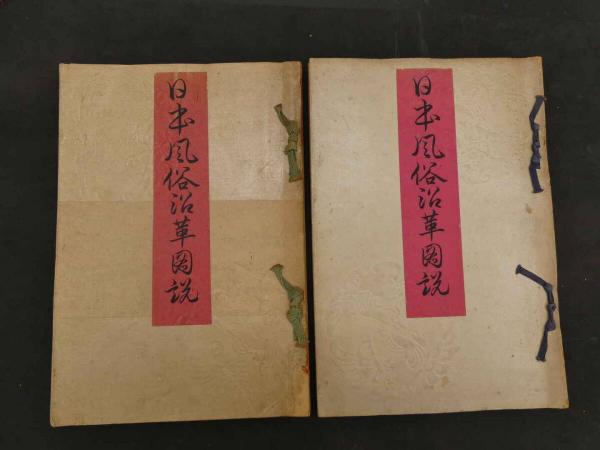 日本風俗沿革図説
日本風俗沿革図説